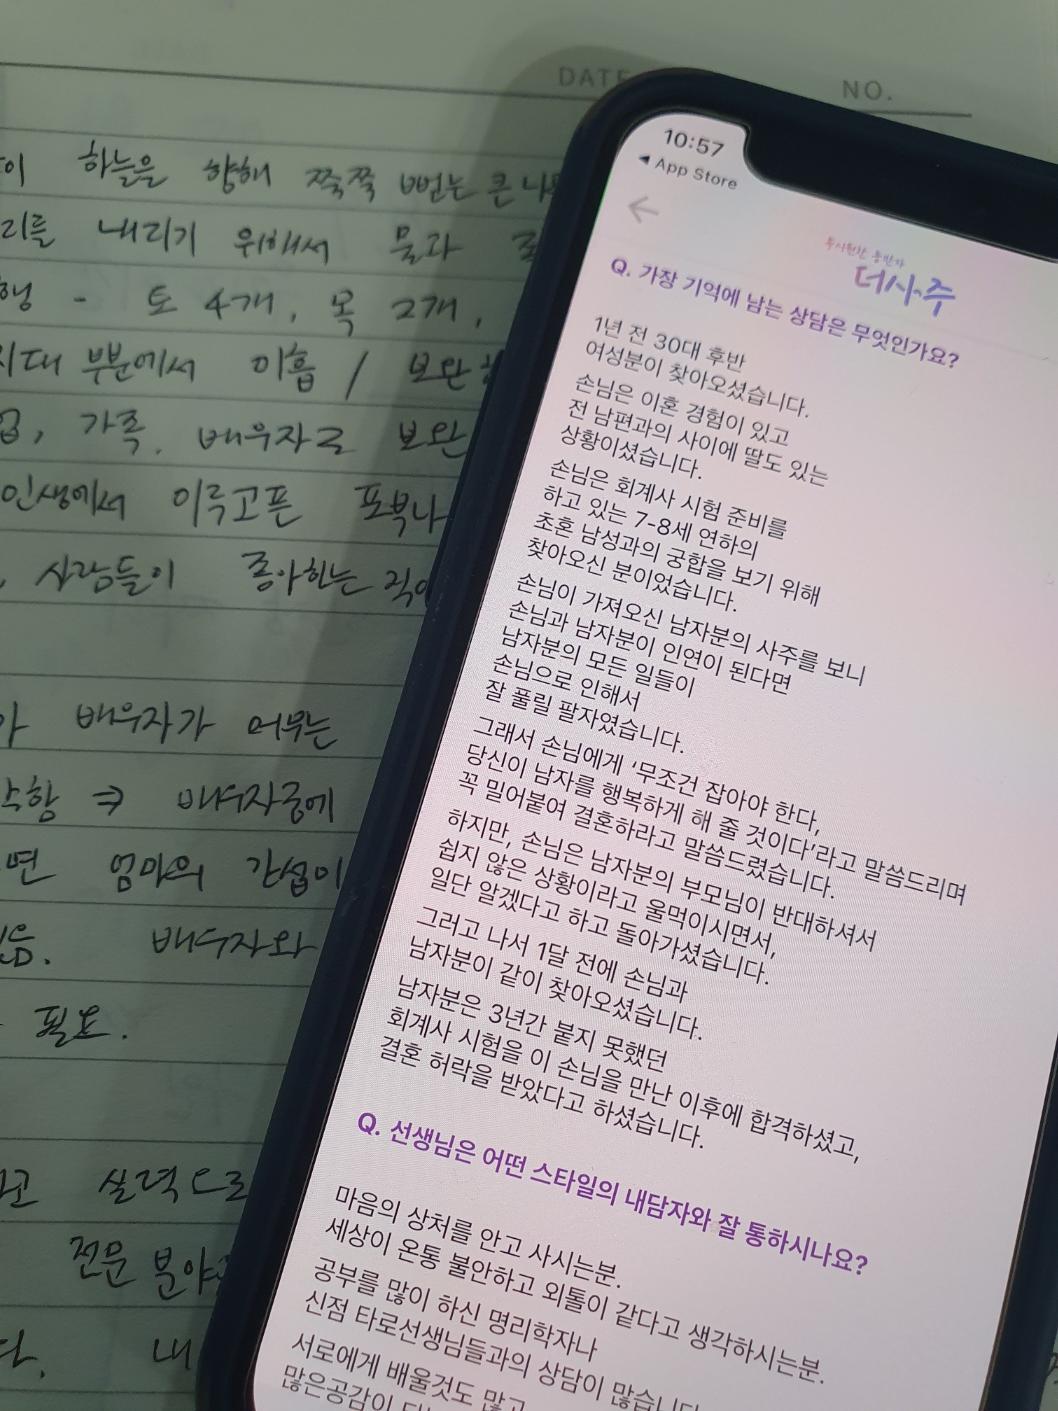 DATE
NO.
하늘을 향해 쭉쭉 뻗는 큰
내리기 위해서 물과
토 4개, 목 2개,
부분에서 이흡 / 보완
가족, 배우자로 보완
인생에서 이루고픈 포부나
사람들이 좋아하는
배우자가 머무는
⇒ 배우자궁에
엄마의 간섭이
배우자와
필요.
실력으로
전문 분야
내
10:57
◀ App Store
←
동시현찬 동반자
더사주
Q. 가장 기억에 남는 상담은 무엇인가요?
1년 전 30대 후반
여성분이 찾아오셨습니다.
손님은 이혼 경험이 있고
전 남편과의 사이에 딸도 있는
상황이셨습니다.
손님은 회계사 시험 준비를
하고 있는 7-8세 연하의
초혼 남성과의 궁합을 보기 위해
찾아오신 분이었습니다.
손님이 가져오신 남자분의 사주를 보니
손님과 남자분이 인연이 된다면
남자분의 모든 일들이
손님으로 인해서
잘 풀릴 팔자였습니다.
그래서 손님에게 ‘무조건 잡아야 한다,
당신이 남자를 행복하게 해 줄 것이다’라고 말씀드리며
꼭 밀어붙여 결혼하라고 말씀드렸습니다.
하지만, 손님은 남자분의 부모님이 반대하셔서
쉽지 않은 상황이라고 울먹이시면서,
일단 알겠다고 하고 돌아가셨습니다.
그러고 나서 1달 전에 손님과
남자분이 같이 찾아오셨습니다.
남자분은 3년간 붙지 못했던
회계사 시험을 이 손님을 만난 이후에 합격하셨고,
결혼 허락을 받았다고 하셨습니다.
Q. 선생님은 어떤 스타일의 내담자와 잘 통하시나요?
마음의 상처를 안고 사시는분.
세상이 온통 불안하고 외톨이 같다고 생각하시는분.
공부를 많이 하신 명리학자나
신점 타로선생님들과의 상담이 많습니다
서로에게 배울것도 많고
많은공감이